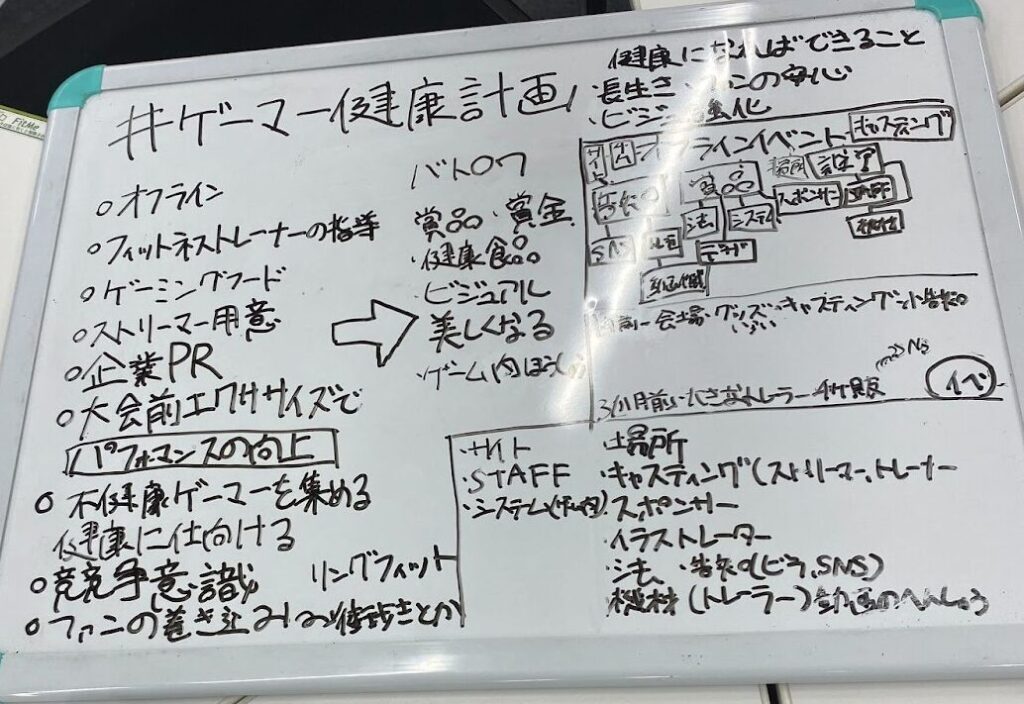 #ゲーマー健康計画
○オフライン
○フィットネストレーナーの指導
○ゲーミングフード
○ストリーマー用意
○企業PR
○大会前エクササイズで
パフォマンスの向上
○不健康ゲーマーを集める
健康に仕向ける
○競争意識 リングフィット
○ファンの巻き込み
バトロワ
賞品・賞金
・健康食品
・ビジュアル
美しくなる
・ゲーム内ほうしゅう
健康になればできること
・長生き・ファンの安心
・ビジュ 強化
オフラインイベント キャスティング
告知 賞品 場所 設営
SNS 法 システム スポンサー 機材
動画作成
会場・グッズ・キャスティング 告知
3ヶ月前 トレーラー
イベ
・サイト
・STAFF
・システム
・場所
・キャスティング(ストリーマー、トレーナー
・スポンサー
・イラストレーター
・法 ・告知(ビラ、SNS)
機材(トレーラー)動画のへんしゅう